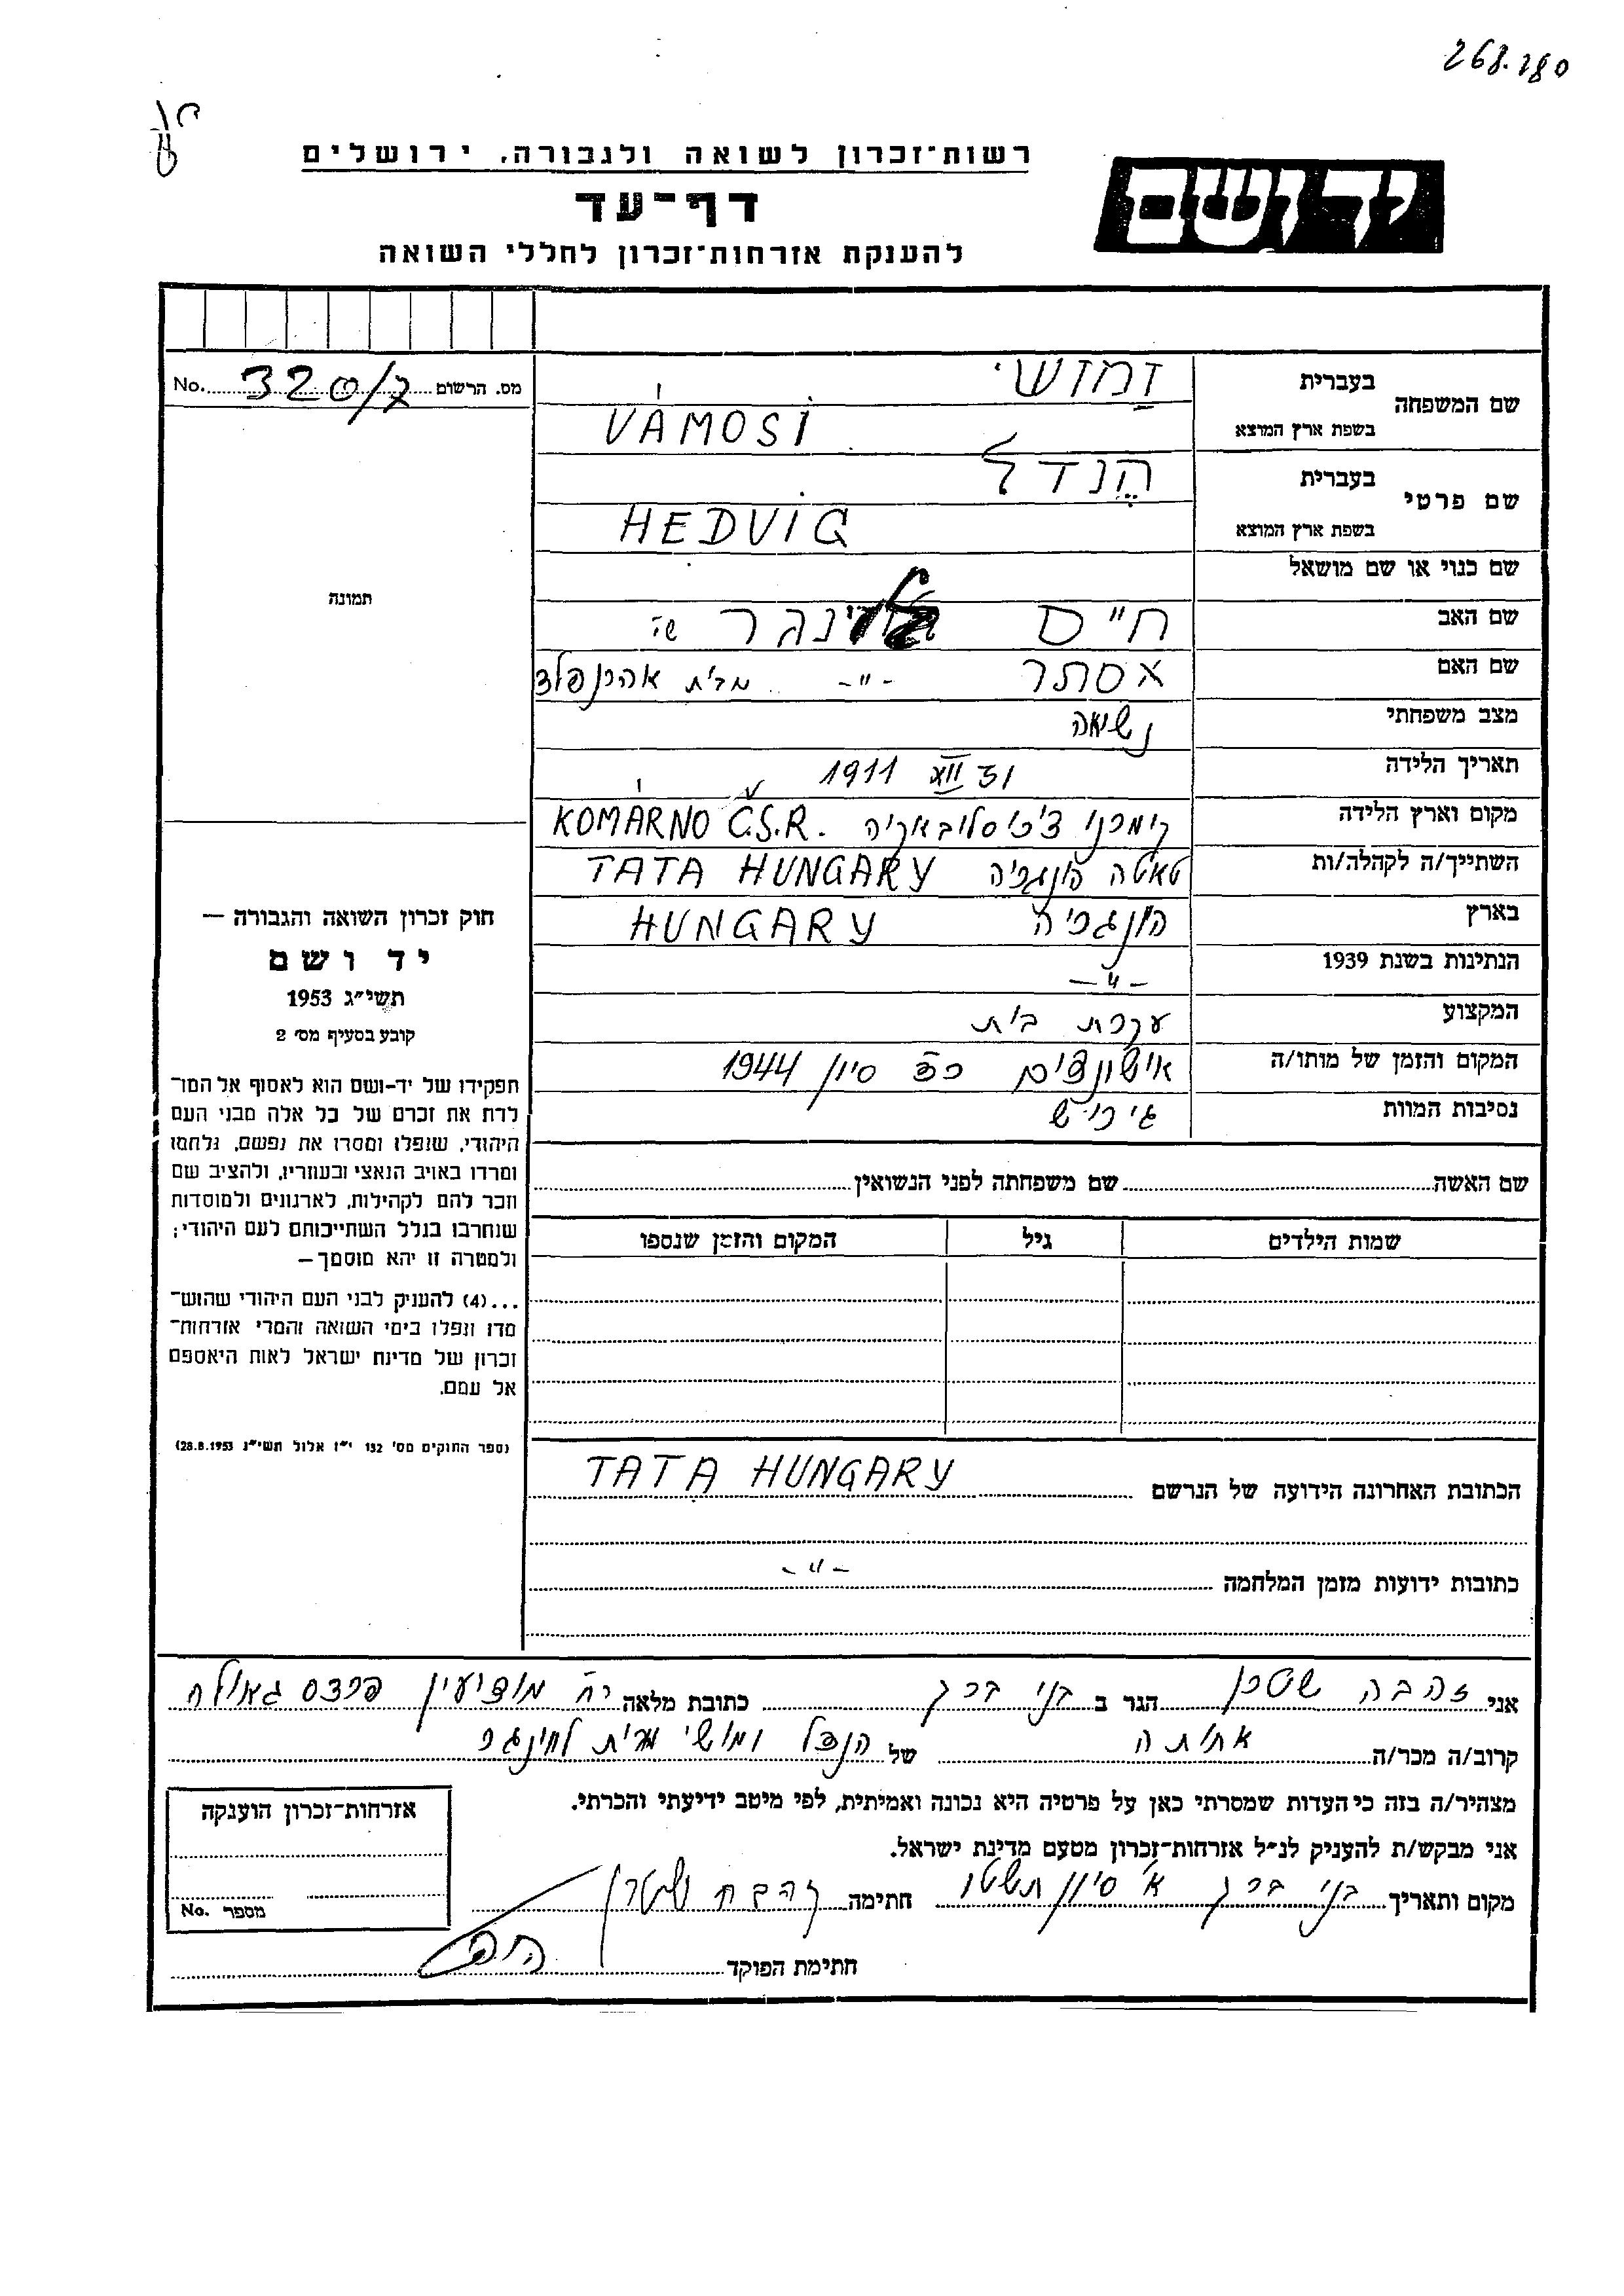 268.180
רשות־זכרון לשואה ולגבורה, ירושלים
יד ושם
דף־עד
להענקת אזרחות־זכרון לחללי השואה
מס. הרשום 320/7 No.
שם המשפחה בעברית וַמושי
בשפת ארץ המוצא VÁMOSI
שם פרטי בעברית הֶנדל
בשפת ארץ המוצא HEDVIG
שם כנוי או שם מושאל
שם האב חיים
שם האם אסתר -"- מבית אהרנפלד
מצב משפחתי נשואה
תאריך הלידה 31 XII 1911
מקום וארץ הלידה קומרנו צ'כוסלובאקיה KOMÁRNO Č.S.R.
השתייך/ה לקהלה/ות טאטה הונגריה TATA HUNGARY
בארץ הונגריה HUNGARY
הנתינות בשנת 1939 -"-
המקצוע עקרת בית
המקום והזמן של מותו/ה אושוויצים סיון 1944
נסיבות המוות
תמונה
חוק זכרון השואה והגבורה —
יד ושם
תשי״ג 1953
קובע בסעיף מס׳ 2
תפקידו של יד־ושם הוא לאסוף אל המו־
לדת את זכרם של כל אלה מבני העם
היהודי, שנפלו ומסרו את נפשם, נלחמו
ומרדו באויב הנאצי ובעוזריו, ולהציב שם
וזכר להם לקהילות, לארגונים ולמוסדות
שנחרבו בגלל השתייכותם לעם היהודי;
ולמטרה זו יהא מוסמך—
...(4) להעניק לבני העם היהודי שהוש־
מדו ונפלו בימי השואה והמרי אזרחות־
זכרון של מדינת ישראל לאות היאספם
אל עמם.
(ספר החוקים מס׳ 132 י״ז אלול תשי״ג 28.8.1953)
שם האשה שם משפחתה לפני הנשואין
שמות הילדים גיל המקום והזמן שנספו
הכתובת האחרונה הידועה של הנרשם TATA HUNGARY
כתובות ידועות מזמן המלחמה -"-
אני זהבה שטרן הגר ב בני ברק כתובת מלאה רח מודיעין פרדס גאולה
קרוב/ה מכר/ה אחותה של הנדל ומושי מבית
מצהיר/ה בזה כי העדות שמסרתי כאן על פרטיה היא נכונה ואמיתית, לפי מיטב ידיעתי והכרתי.
אני מבקש/ת להעניק לנ״ל אזרחות־זכרון מטעם מדינת ישראל.
מקום ותאריך בני ברק א' סיון תשטו חתימה זהבה שטרן
חתימת הפוקד
אזרחות־זכרון הוענקה
מספר No.